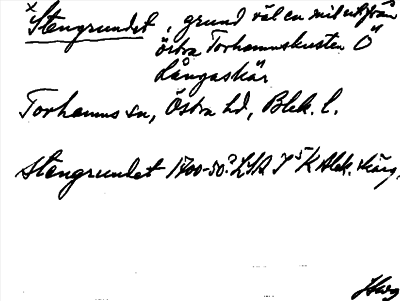 x Stengrundet, grund väl en mil utifrån
östra Torhamnskusten Ö
Långaskär
Torhamns sn, Östra hd, Blek. l.
Stengrundet 1700-50? LSA Blek. skärg.